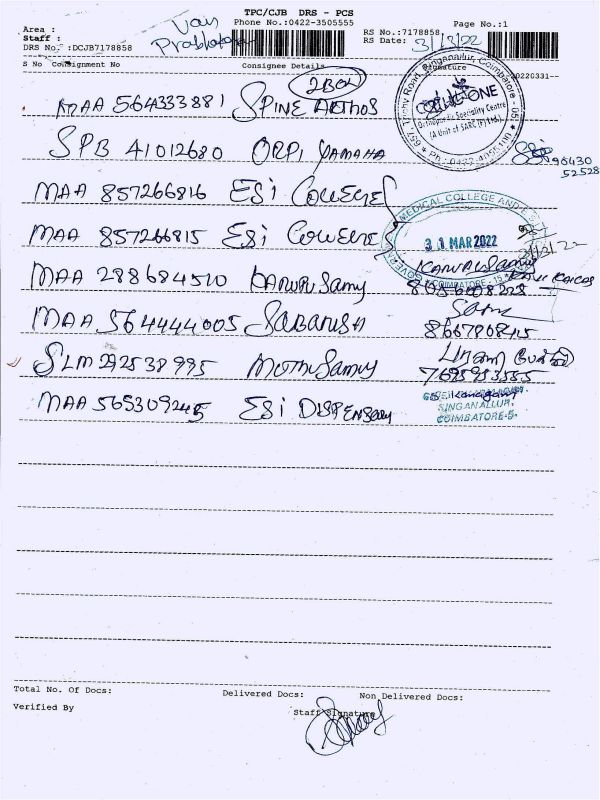 TPC/CJB DRS - PCS
Area :
Van
Phone No.:0422-3505555
Page No.:1
Staff :
Prabhakaran
RS No.:7178858
DRS No. :DCJB7178858
RS Date: 31/3/22
S No Consignment No Consignee Details Signature
20220331--
2 BOX
MAA 564333881 SPINE ORTHOS
ORTHO-ONE
Orthopaedic Speciality Centre
(A Unit of SARC (P) Ltd.)
657, Trichy Road, Singanallur, Coimbatore - 05
Ph : 0422-4055100
SPB 41012680 ORPI YAMAHA
96430
52528
MAA 857266816 ESi COLLEGE
MEDICAL COLLEGE AND E.S.I
31 MAR 2022
COIMBATORE-15
MAA 857266815 ESi COLLEGE
31/3/22
MAA 288684510 KARUPUSamy
KARUPUSamy
MAA 564444005 SABARISH
866780845
SLM 292538995 MUTHUSamy
7695953555
MAA 565309245 ESi DISPENSARY
SINGANALLUR.
COIMBATORE-5.
Total No. Of Docs: Delivered Docs: Non Delivered Docs:
Verified By Staff Signature